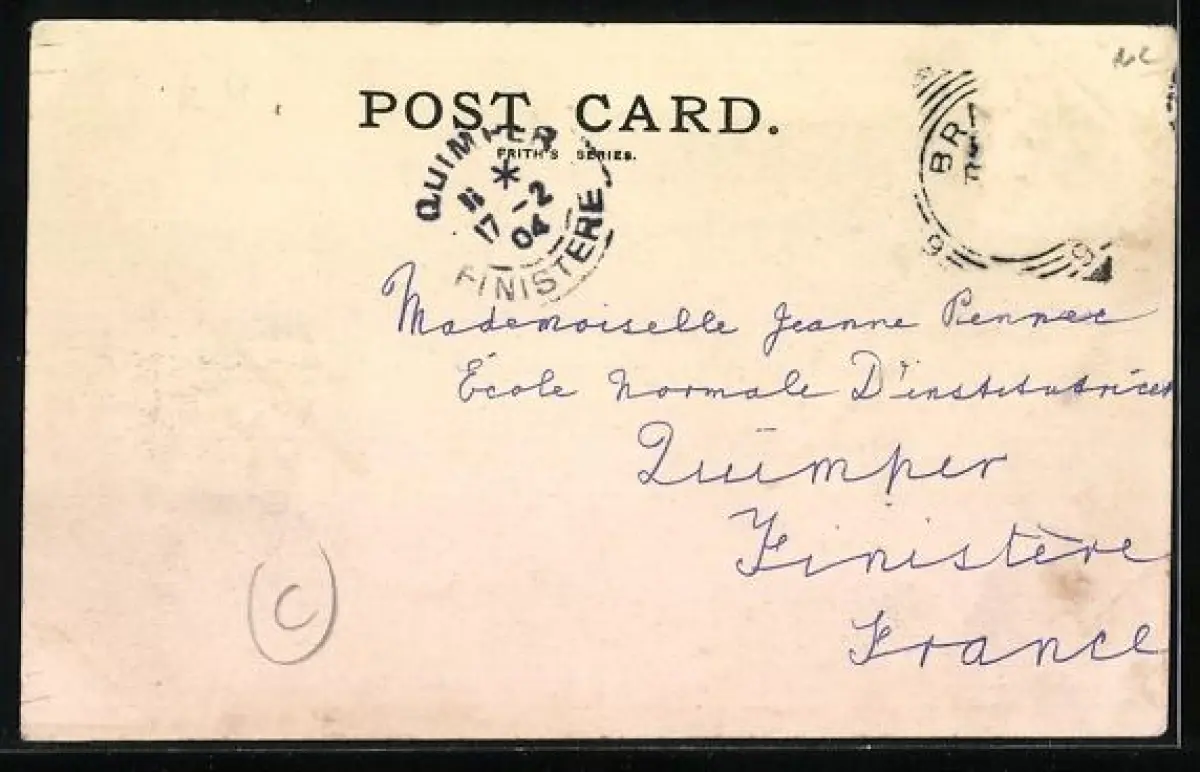 POST CARD.
FRITH'S SERIES.
QUIMPER
*
17 -2
04
FINISTERE
BR
9 9
Mademoiselle Jeanne Pennec
École Normale D'institutrices
Quimper
Finistère
France
C